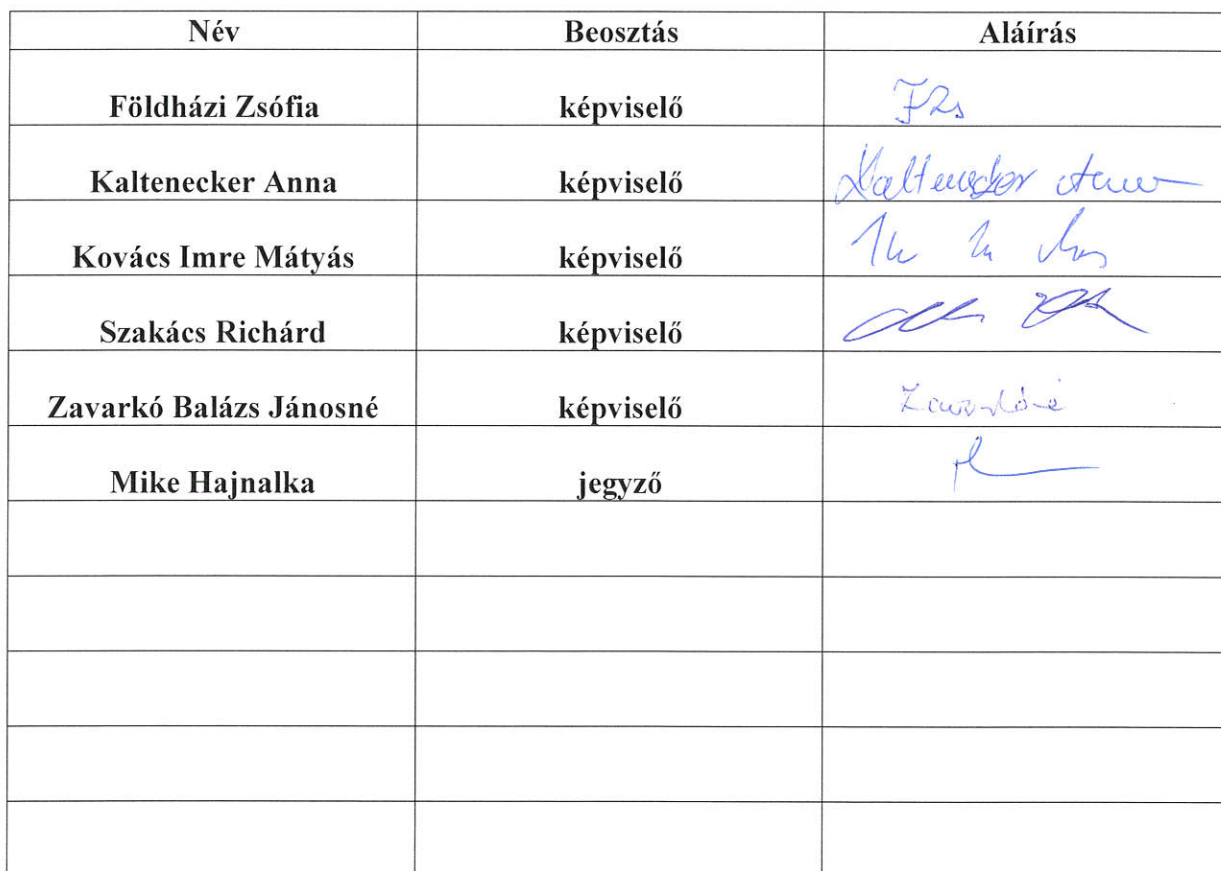 Név Beosztás Aláírás
Földházi Zsófia képviselő FZs
Kaltenecker Anna képviselő Kaltenecker Anna
Kovács Imre Mátyás képviselő
Szakács Richárd képviselő
Zavarkó Balázs Jánosné képviselő
Mike Hajnalka jegyző